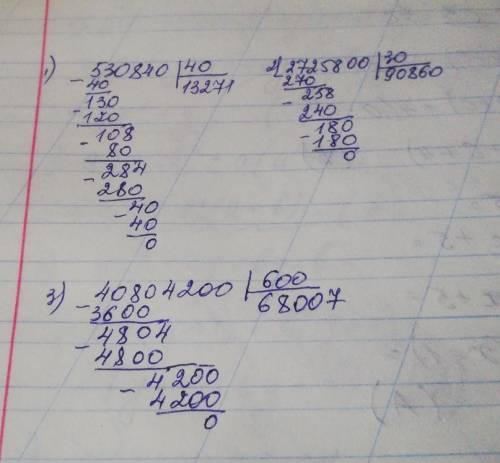 1) 530840 |40
- 40 13271
130
- 120
- 108
80
- 284
280
- 40
40
0
2) 2725800 |30
270 90860
- 258
240
- 180
180
0
3) 40804200 |600
- 3600 68007
4804
- 4800
- 4200
4200
0